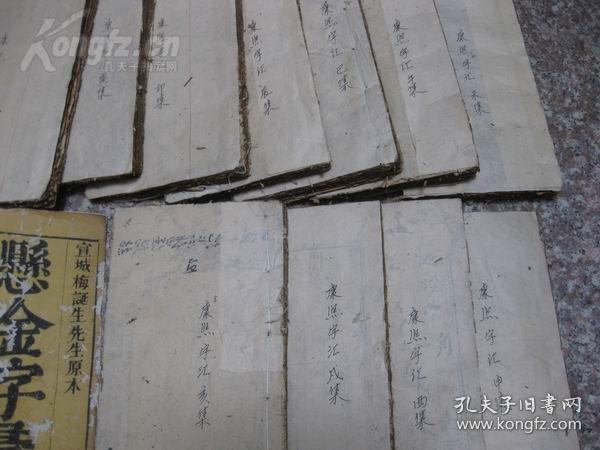 Kongfz.cn
孔夫子旧书网
寅集
卯集
康熙字汇 辰集
康熙字汇 巳集
康熙字汇 午集
康熙字汇 未集
宣城梅誕生先生原本
懸金字
康熙字汇 亥集
康熙字汇 戌集
康熙字汇 酉集
康熙字汇 申
孔夫子旧书网
www.kongfz.com